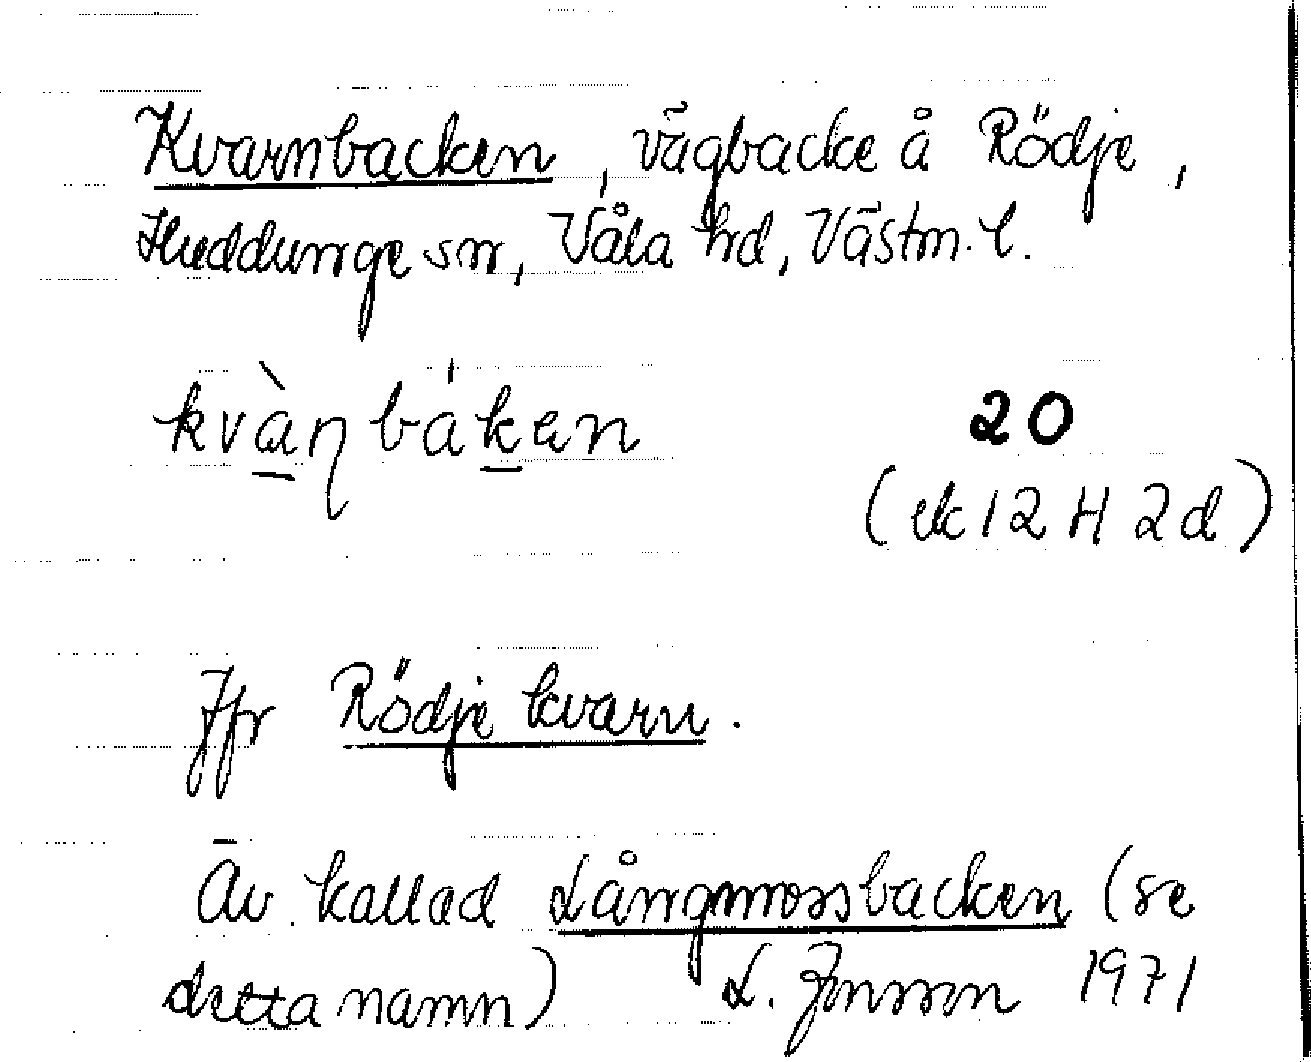 Kvarnbacken, vägbacke å Rödje,
Huddunge sn, Våla hd, Västm. l.
kvàɳbáken
20
(ek 12 H 2d)
Jfr Rödje kvarn.
Äv. kallad Långmossbacken (se
detta namn) L. Jonsson 1971